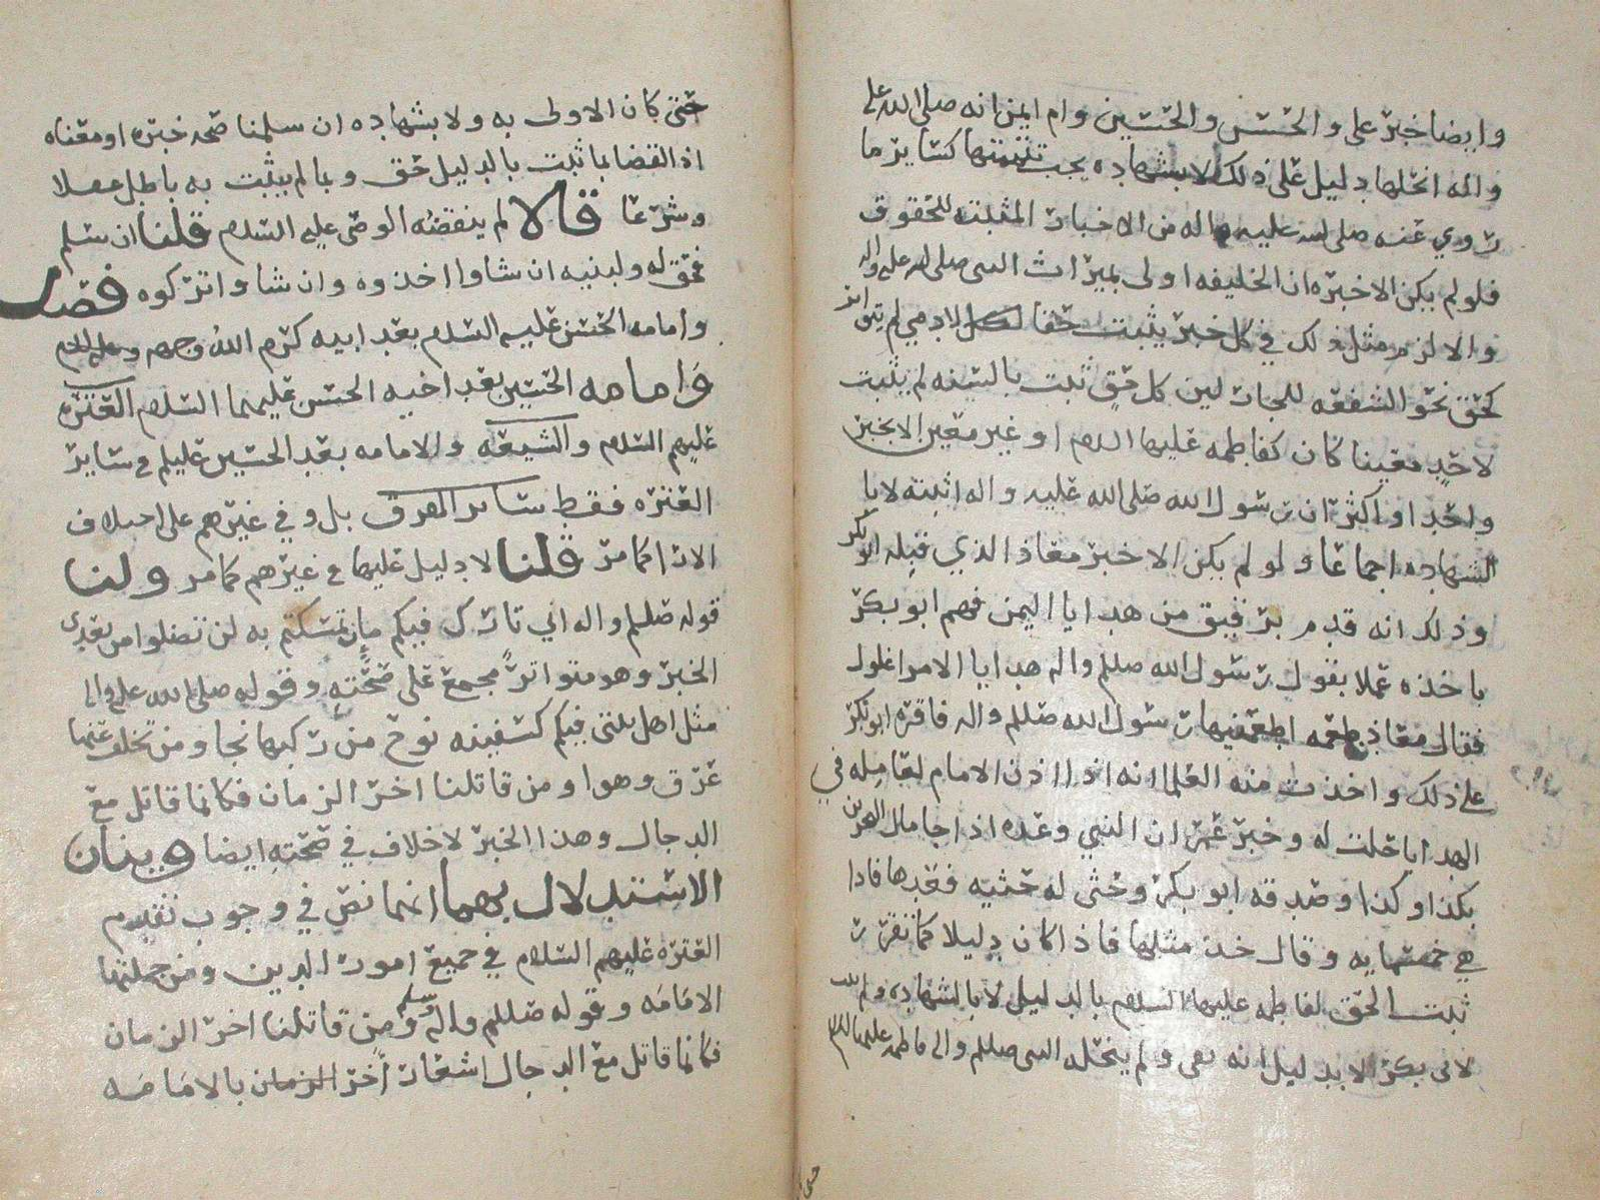 وايضا خبر علي والحسن والحسين وام ايمن انه صلى الله عليه
واله انحلها دليل على ذلك لا بشهاده يجب تتميمها كساير ما
روي عنه صلى الله عليه واله من الاخبار المثبته للحقوق
فلو لم يكن الا خبره ان الخليفه اولى بميراث النبي صلى الله عليه واله
والا لزم مثل ذلك في كل خبر يثبت حقا لادمي لم يتواتر
كحق نحو الشفعه للجار لين كل حق ثبت بالسنه لم يثبت
لاحد معينا كان كفاطمه عليها السلم او غير معين الا بخبر
واحد او اكثر ان رسول الله صلى الله عليه واله اثبته لا با
الشهاده اجماعا ولو لم يكن الا خبر معاذ الذي قبله ابو بكر
وذلك انه قدم برقيق من هدايا اليمن فهم ابو بكر
باخذه عملا بقول رسول الله صللم واله هدايا الامرا غلول
فقال معاذ طعمه اطعمنيها رسول الله صللم واله فاقره ابو بكر
على ذلك واخذت منه العلما انه اذا اذن الامام لعامله في
الهدايا حلت له وخبر عمر ان النبي وعده اذا جا مال البحرين
بكذا وكذا وصدقه ابو بكر وحثى له حثيه فعدها فاذا
هي خمسمايه وقال خذ مثلها فاذا كان دليلا كما تقرر
ثبت الحق لفاطمه عليها السلام بالدليل لا بالشهاده ولم يثبت
لابي بكر الا بدليل انه بقي ولم ينحله النبي صللم واله فاطمه عليها السلم
حتى كان الاولى به ولا بشهاده ان سلمنا صحه خبره او معناه
اذ القضا بما ثبت بالدليل حق وبما لم يثبت به باطل عقلا
وشرعا قالا لم ينقضه الوصي عليه السلام قلنا ان سلم
فحق له ولبنيه ان شاوا اخذوه وان شاوا تركوه فصل
وامامه الحسن عليه السلام بعد ابيه كرم الله وجهه وعليه السلام
وامامه الحسين بعد اخيه الحسن عليهما السلام العتره
عليهم السلام والشيعه والامامه بعد الحسين عليلم في ساير
العتره فقط ساير الفرق بل وفي غيرهم على اختلاف
الارا كما مر قلنا لا دليل عليها في غيرهم كما مر ولنا
قوله صللم واله اني تارك فيكم ما ان تمسكتم به لن تضلوا من بعدي
الخبر وهو متواتر مجمع على صحته وقوله صلى الله عليه واله
مثل اهل بيتي فيكم كسفينه نوح من ركبها نجا ومن تخلف عنها
غرق وهوا ومن قاتلنا اخر الزمان فكانما قاتل مع
الدجال وهذا الخبر لا خلاف في صحته ايضا وبيان
الاستدلال بهما انهما نص في وجوب تقديم
العتره عليهم السلام في جميع امور الدين ومن جملتها
الامامه وقوله صللم واله وسلم ومن قاتلنا اخر الزمان
فكانما قاتل مع الدجال اشعار اخر الزمان بالامامه